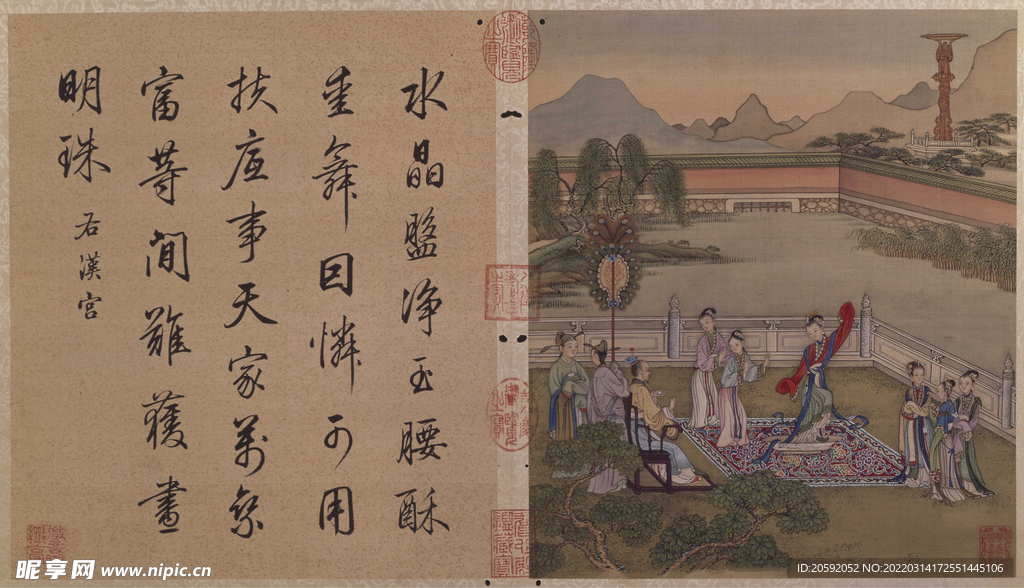 水晶盤淨玉腰酥
舞因憐可用
扶底事天家萬乘
富等閒難獲畫
明珠 右漢宮
昵享网 www.nipic.cn
ID:20592052 NO:20220314172551445106